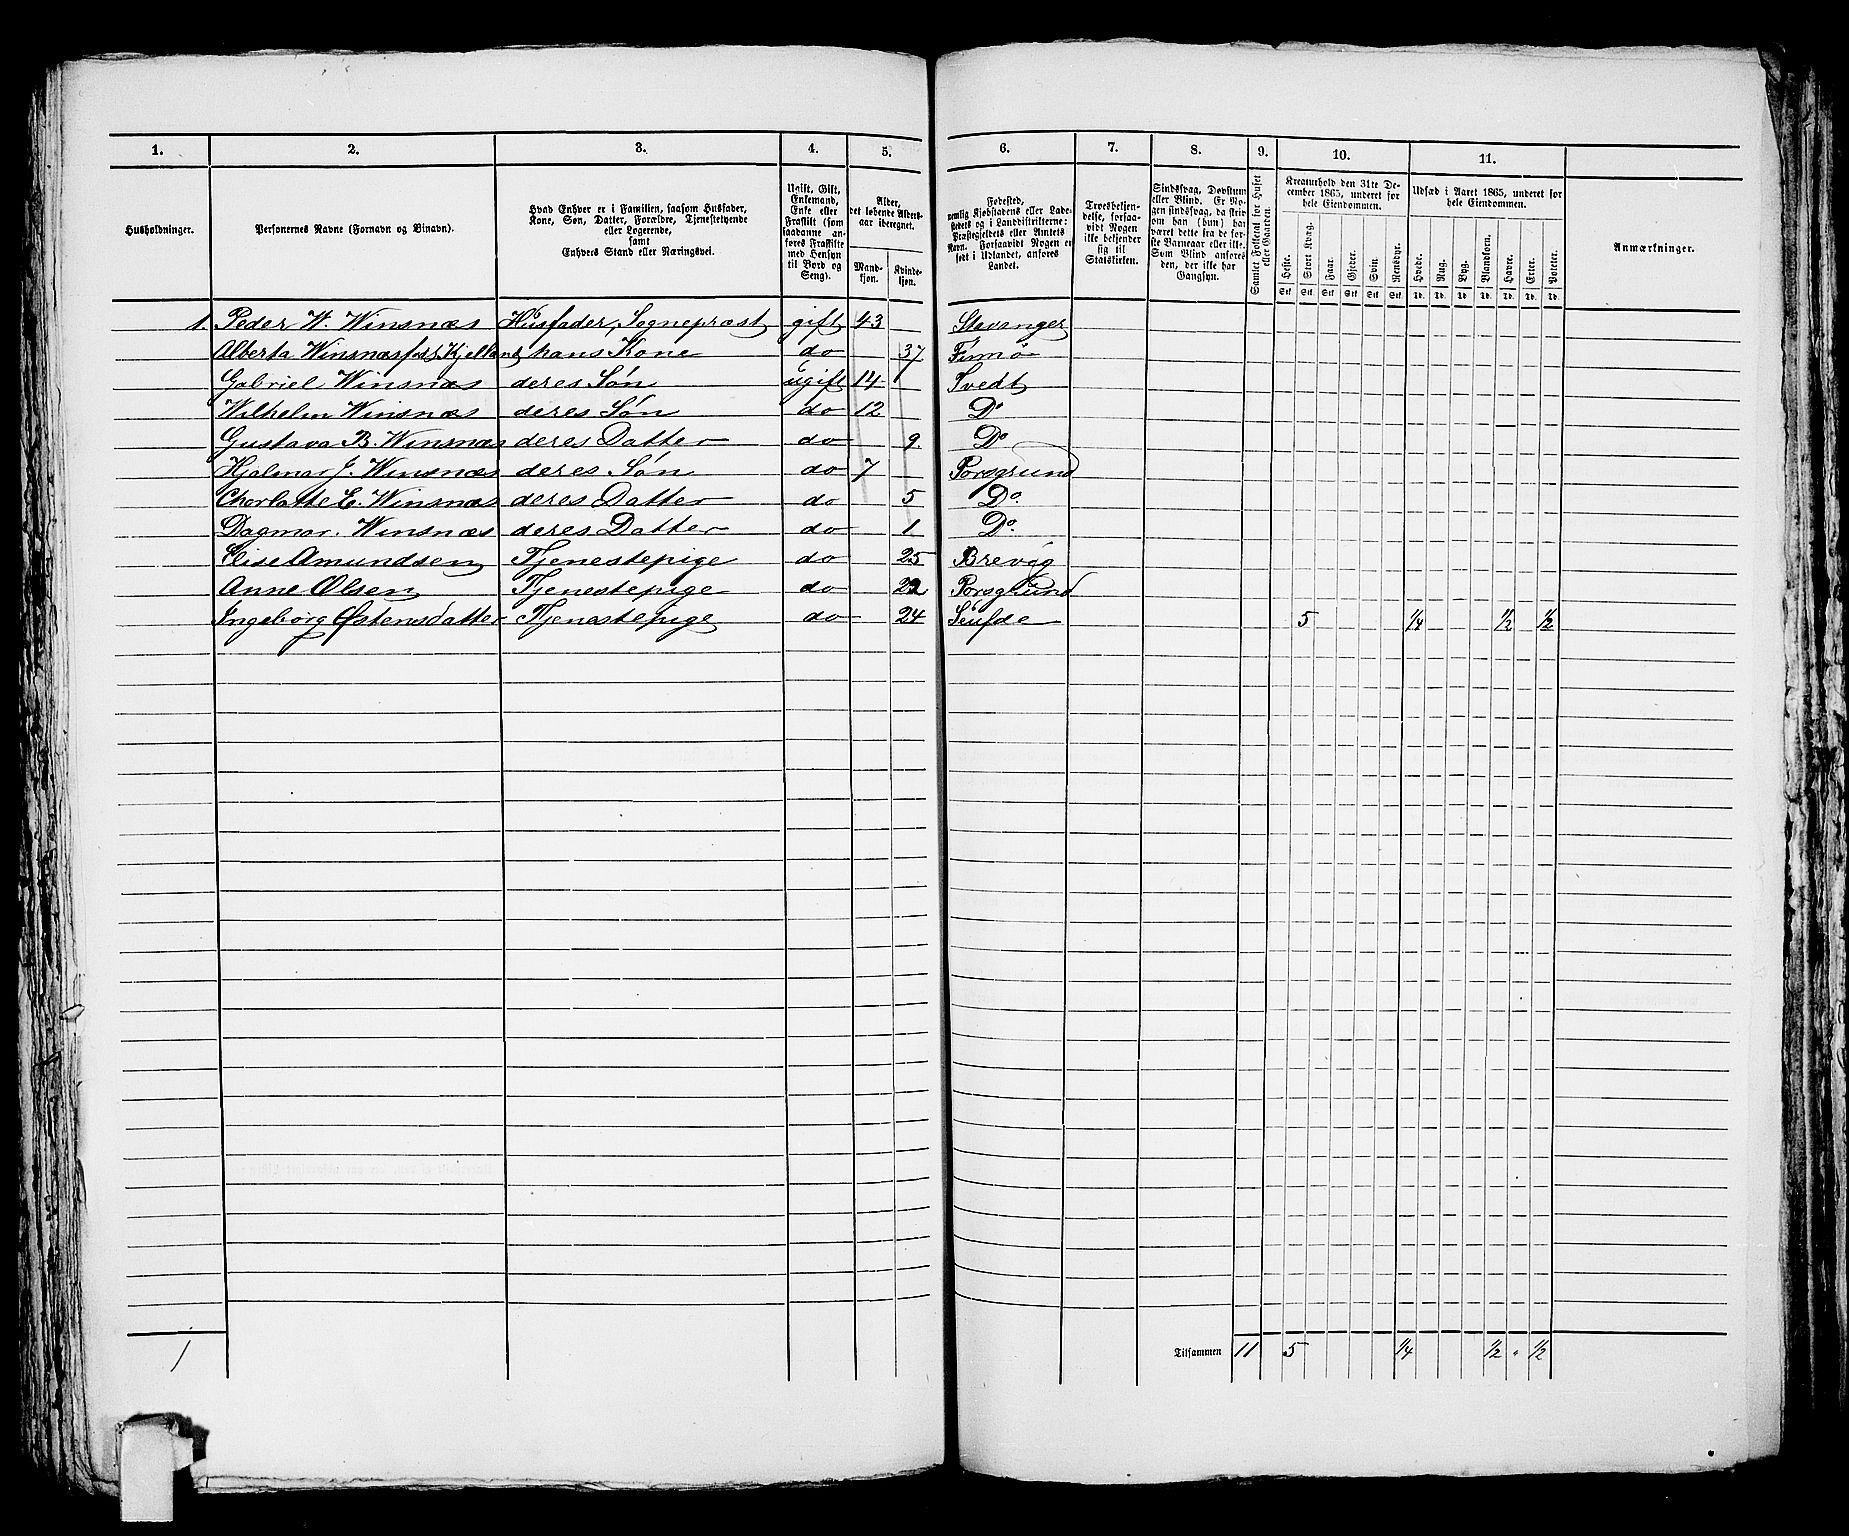 1. 2. 3. 4. 5. 6. 7. 8. 9. 10. 11.
Husholdninger.
Personernes Navne (Fornavn og Binavn).
Hvad Enhver er i Familien, saasom Husfader,
Kone, Søn, Datter, Forældre, Tjenestetyende
eller Logerende,
samt
Enhvers Stand eller Næringsvei.
Ugift, Gift,
Enkemand,
Enke eller
Fraskilt (som
saadanne an-
føres Fraskilte
med Hensyn
til Bord og
Seng).
Alder,
det løbende Alders-
aar iberegnet.
Mand-
kjøn.
Kvinde-
kjøn.
Fødested,
nemlig Kjøbstadens eller Lade-
stedets og i Landdistrikterne:
Præstegjeldets eller Amtets
Navn. Forsaavidt Nogen er
født i Udlandet, anføres
Landet.
Troesbekjen-
delse, forsaa-
vidt Nogen
ikke bekjender
sig til
Statskirken.
Sindssvag, Døvstum
eller Blind. Er No-
gen sindssvag, da skri-
ves om han (hun) har
været dette fra de før-
ste Barneaar eller ikke.
Som Blind anføres
den, der ikke har
Gangsyn.
Samlet Folketal for Huset
eller Gaarden.
Kreaturhold den 31te De-
cember 1865, underet for
hele Eiendommen.
Heste. Stort Kvæg. Faar. Gjeder. Svin. Rensdyr.
Stk. Stk. Stk. Stk. Stk. Stk.
Udsæd i Aaret 1865, underet for
hele Eiendommen.
Hvede. Rug. Byg. Blandkorn. Havre. Erter. Poteter.
Td. Td. Td. Td. Td. Td. Td.
Anmærkninger.
1. Peder W. Winsnæs Husfader, Sognepræst gift 43 Stavanger
Alberta Winsnæs født Kjelland hans Kone do 37 Finnø
Gabriel Winsnæs deres Søn ugift 14 Tvedt
Wilhelm Winsnæs deres Søn do 12 Do
Gustava B. Winsnæs deres Datter do 9. Do
Hjalmar J. Winsnæs deres Søn do 7 Porsgrund
Charlotte E. Winsnæs deres Datter do 5 Do.
Dagmar. Winsnæs deres Datter do 1. Do.
Elise Amundsen Tjenestepige do 25 Brevig
Anne Olsen Tjenestepige do 22 Porsgrund
Ingeborg Østensdatter Tjenestepige do 24 5 1/4 1/2 1/2
1 Tilsammen 11 5 1/4 1/2 " 1/2